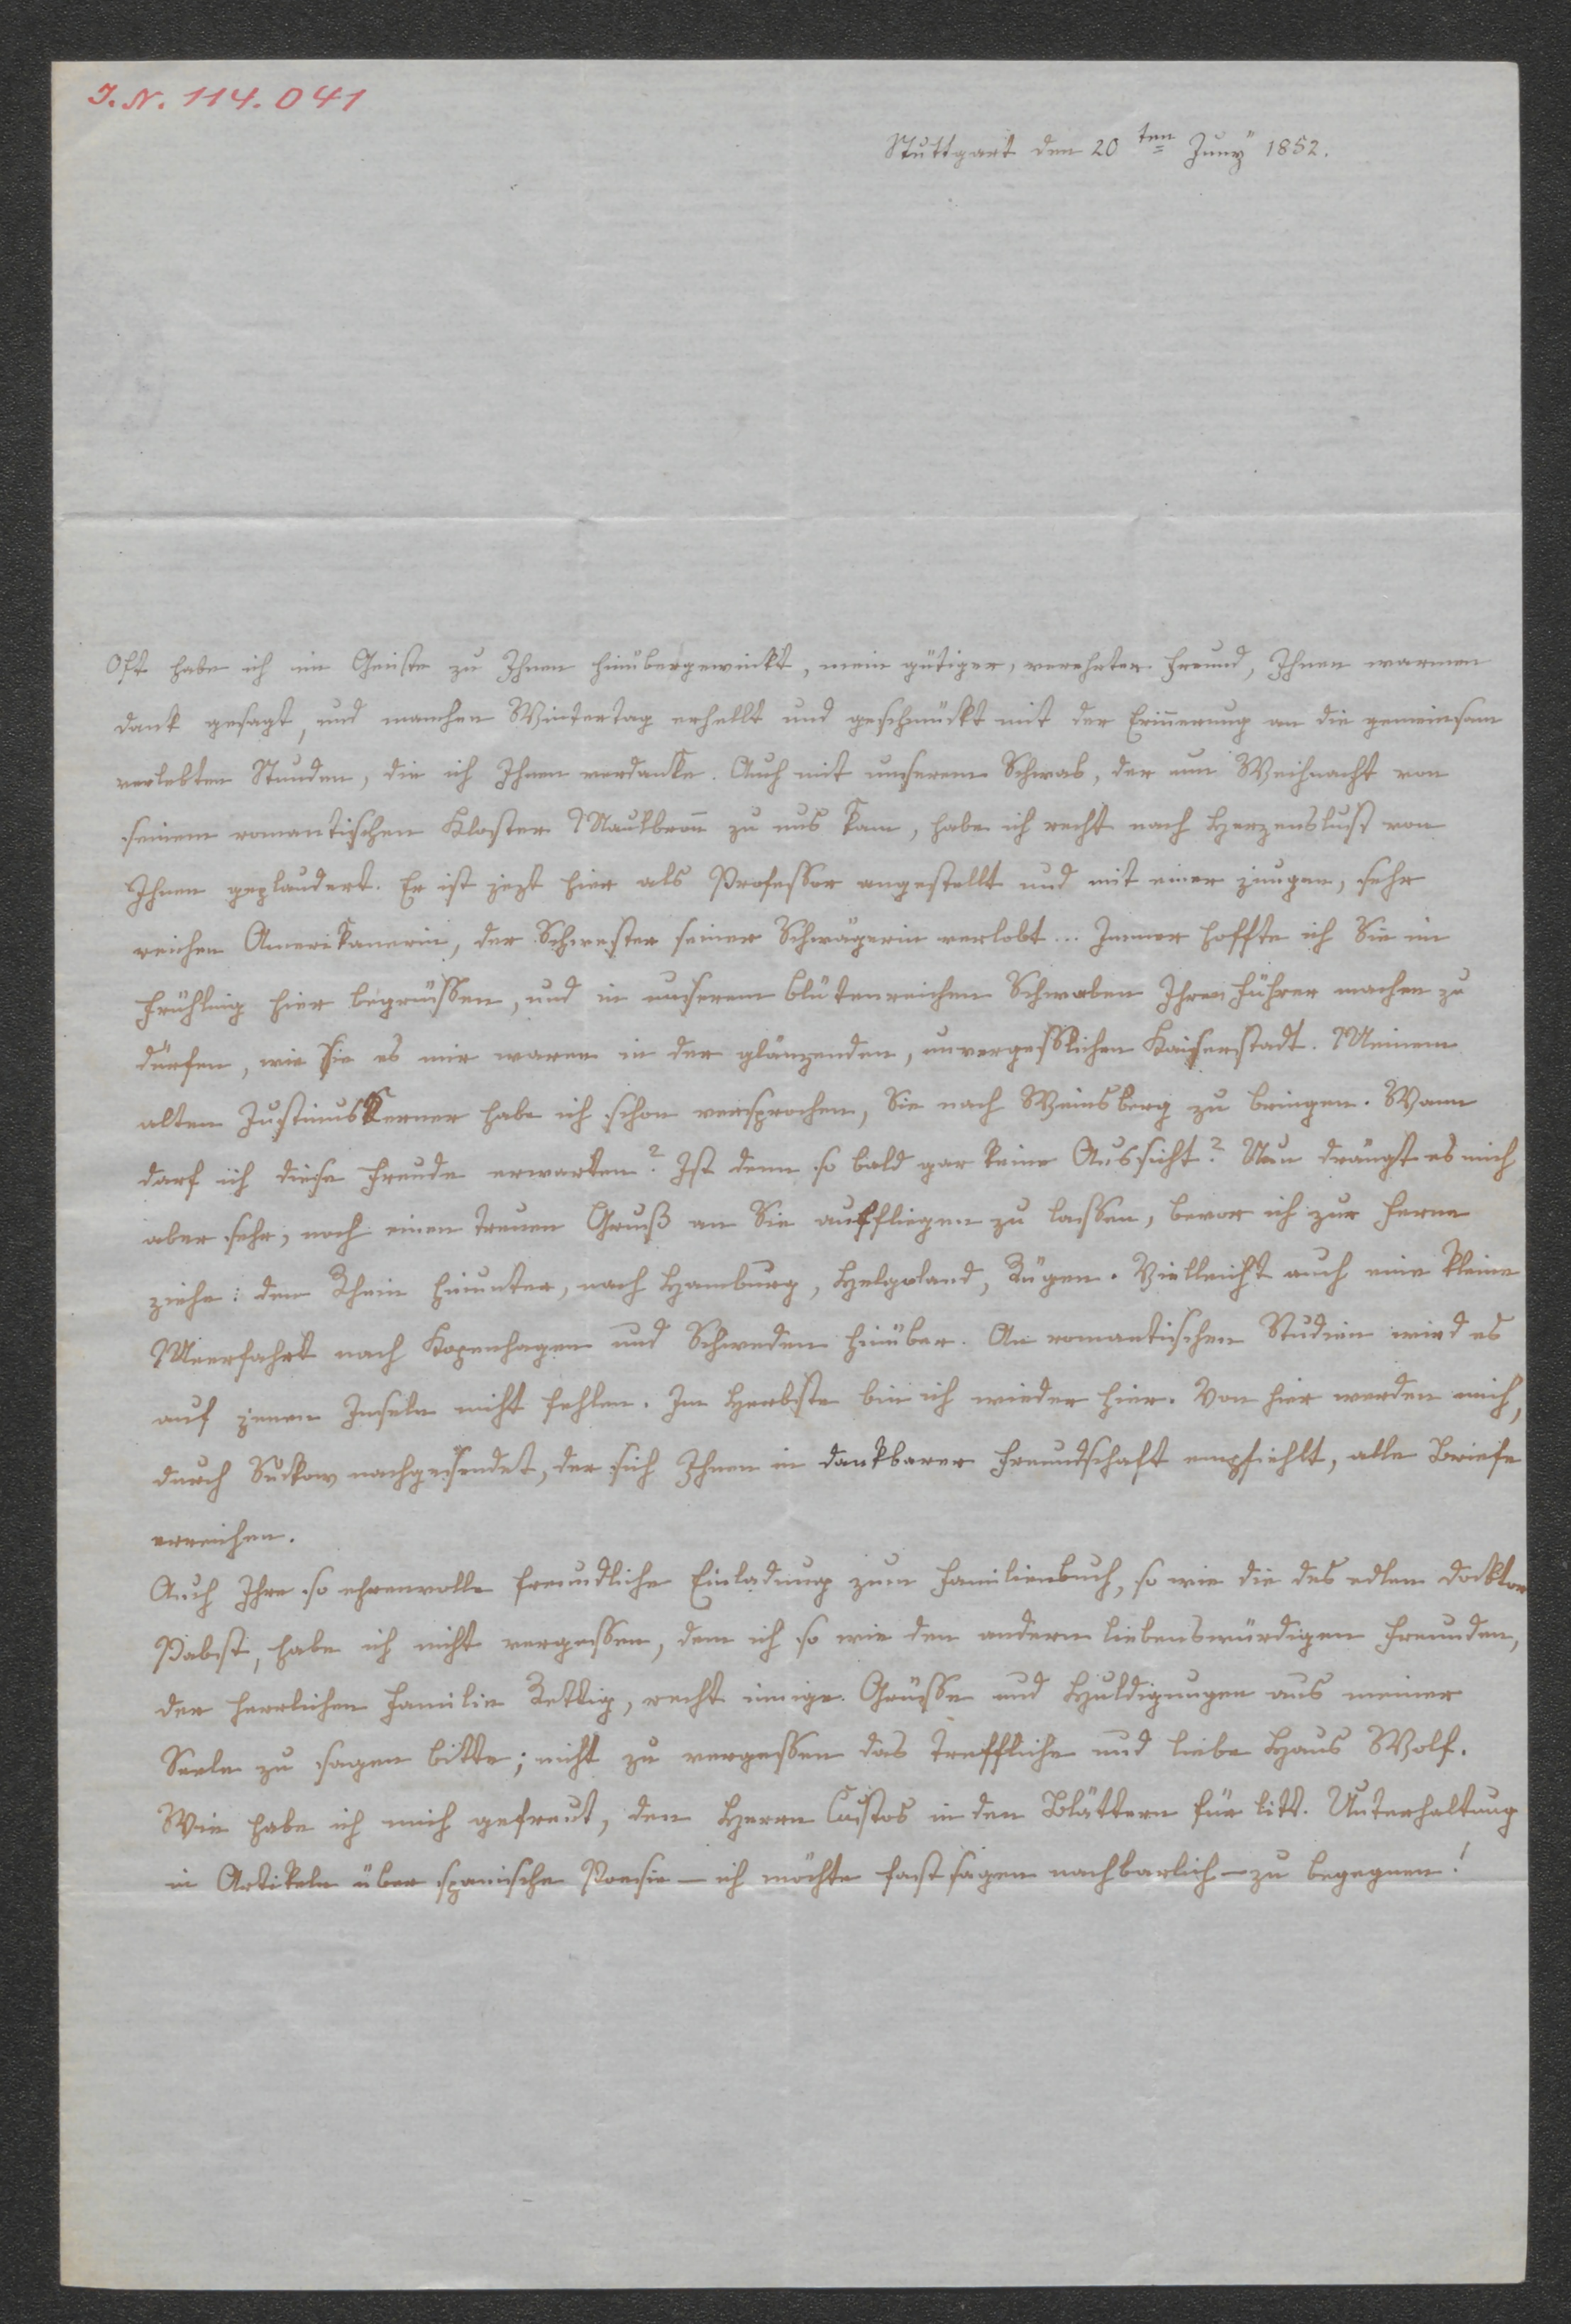 I.N. 114.041
Stuttgart den 20ten Juny 1852.
Oft habe ich im Geiste zu Ihnen hinübergewinkt, mein gütiger, verehrter Freund, Ihnen warmen
Dank gesagt, und manchen Wintertag erhellt und geschmückt mit der Erinnerung an die gemeinsam
verlebten Stunden, die ich Ihnen verdanke. Auch mit unserem Schwab, der um Weihnacht von
seinem romantischen Kloster Maulbronn zu uns kam, habe ich recht nach Herzenslust von
Ihnen geplaudert. Er ist jezt hier als Professor angestellt und mit einer jungen, sehr
reichen Amerikanerin, der Schwester seiner Schwägerin verlobt... Immer hoffte ich Sie im
Frühling hier begrüssen, und in unserem blütenreichen Schwaben Ihren Führer machen zu
dürfen, wie Sie es mir waren in der glänzenden, unvergesslichen Kaiserstadt. Meinem
alten Justinus Kerner habe ich schon versprochen, Sie nach Weinsberg zu bringen. Wann
darf ich diese Freude erwarten? Ist denn so bald gar keine Aussicht? Nun drängt es mich
aber sehr, noch einen treuen Gruß an Sie auffliegen zu lassen, bevor ich zur Ferne
ziehe: den Rhein hinunter, nach Hamburg, Helgoland, Rügen. Vielleicht auch eine kleine
Meerfahrt nach Kopenhagen und Schweden hinüber. An romantischen Studien wird es
auf jenen Inseln nicht fehlen. Im Herbste bin ich wieder hier. Von hier werden mich,
durch Suckow nachgesendet, der sich Ihnen in dankbarer Freundschaft empfiehlt, alle Briefe
erreichen.
Auch Ihre so ehrenvolle freundliche Einladung zum Familienbuch, so wie die des edlen Docktor
Pabst, habe ich nicht vergessen, dem ich so wie den andern liebenswürdigen Freunden,
der herrlichen Familie Rettig, recht innige Grüsse und Huldigungen aus meiner
Seele zu sagen bitte; nicht zu vergessen das treffliche und liebe Haus Wolf.
Wie habe ich mich gefreut, den Herrn Custos in den Blättern für litt. Unterhaltung
in Artikeln über spanische Poesie — ich möchte fast sagen nachbarlich — zu begegnen!